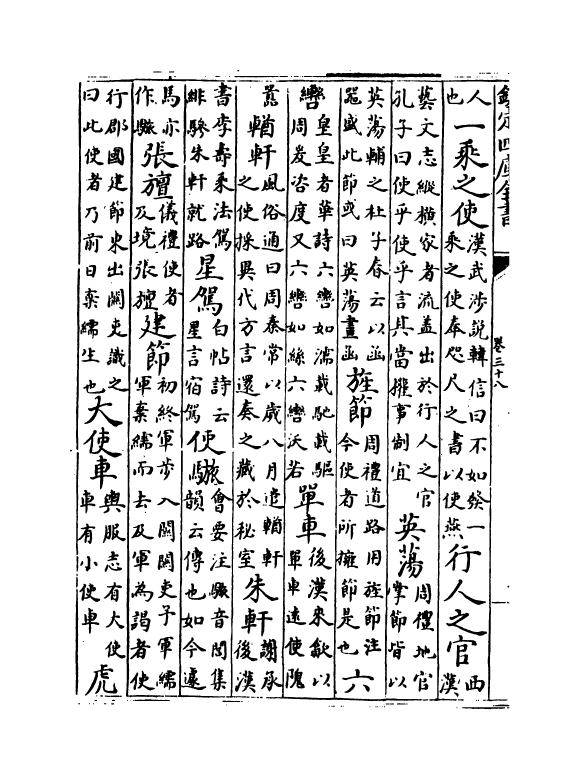 欽定四庫全書 卷三十八
人也 一乘之使 漢武涉說韓信曰不如發一乘之使奉咫尺之書以使燕 行人之官 西漢
藝文志縱橫家者流蓋出於行人之官孔子曰使乎使乎言其當權事制宜 英蕩 周禮地官掌節皆以
英蕩輔之杜子春云以函器盛此節或曰英蕩畫函 旌節 周禮道路用旌節注今使者所擁節是也 六
轡 皇皇者華詩六轡如濡載馳載驅周爰咨度又六轡如絲六轡沃若 單車 後漢來歙以單車遠使隗
囂 輶軒 風俗通曰周秦常以歲八月遣輶軒之使採異代方言還奏之藏於秘室 朱軒 謝承後漢
書李壽乘法駕緋驂朱軒就路 星駕 白帖詩云星言宿駕 使 會要注音閏集韻云傳也如今遽
馬亦作 張旜 儀禮使者及境張旜 建節 初終軍步入關關吏予軍繻軍棄繻而去及軍為謁者使
行郡國建節東出關吏識之曰此使者乃前日棄繻生也 大使車 輿服志有大使車有小使車 虎